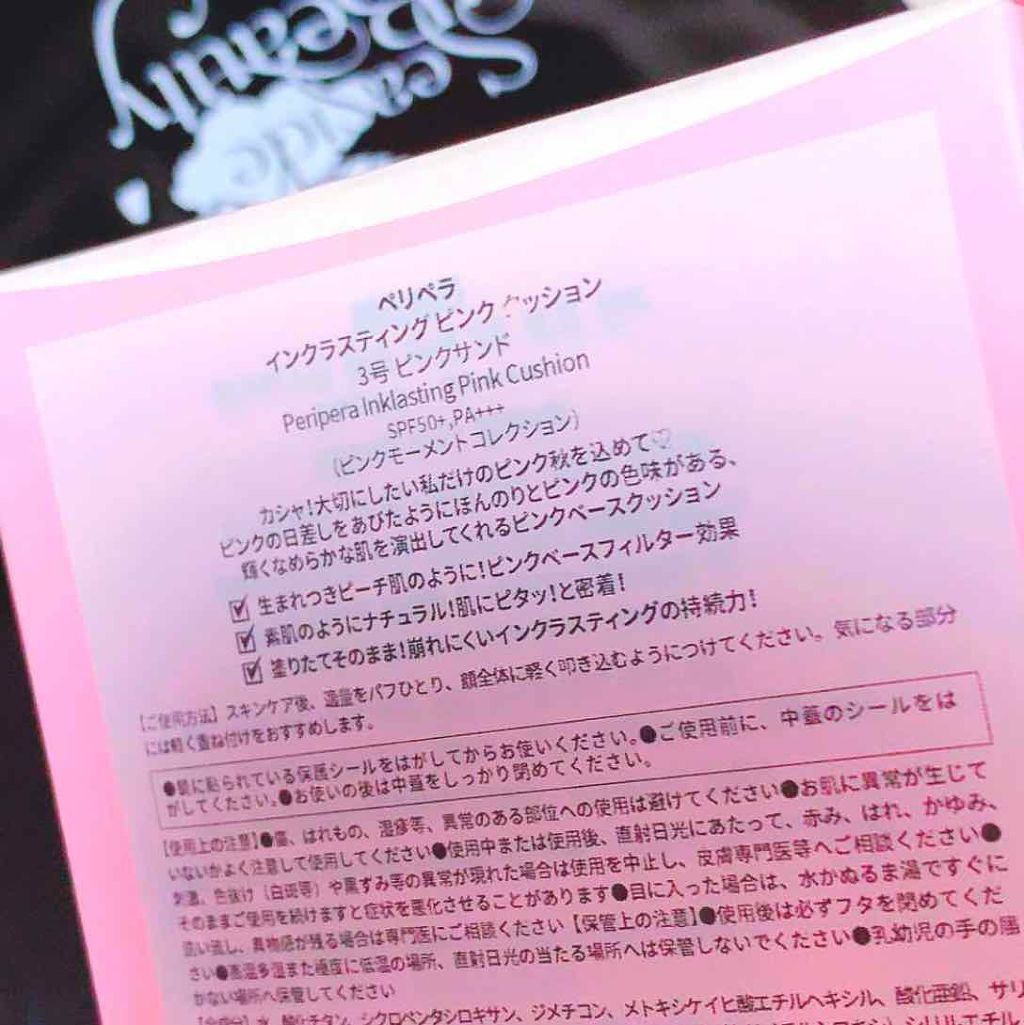 Seaside
Beauty
ペリペラ
インクラスティング ピンク クッション
3号 ピンクサンド
Peripera Inklasting Pink Cushion
SPF50+,PA+++
(ピンクモーメントコレクション)
カシャ!大切にしたい私だけのピンク秋を込めて♡
ピンクの日差しをあびたようにほんのりとピンクの色味がある、
輝くなめらかな肌を演出してくれるピンクベースクッション
☑ 生まれつきピーチ肌のように!ピンクベースフィルター効果
☑ 素肌のようにナチュラル!肌にピタッ!と密着!
☑ 塗りたてそのまま!崩れにくいインクラスティングの持続力!
【ご使用方法】スキンケア後、適量をパフにとり、顔全体に軽く叩き込むようにつけてください。気になる部分
には軽く重ね付けをおすすめします。
●鏡に貼られている保護シールをはがしてからお使いください。●ご使用前に、中蓋のシールをは
がしてください。●お使いの後は中蓋をしっかり閉めてください。
【使用上の注意】●傷、はれもの、湿疹等、異常のある部位への使用は避けてください●お肌に異常が生じて
いないかよく注意して使用してください●使用中または使用後、直射日光にあたって、赤み、はれ、かゆみ、
刺激、色抜け(白斑等)や黒ずみ等の異常が現れた場合は使用を中止し、皮膚専門医等へご相談ください●
そのままご使用を続けますと症状を悪化させることがあります●目に入った場合は、水かぬるま湯ですぐに
洗い流し、異物感が残る場合は専門医にご相談ください【保管上の注意】●使用後は必ずフタを閉めてくだ
さい●高温多湿また極度に低温の場所、直射日光の当たる場所へは保管しないでください●乳幼児の手の届
かない場所へ保管してください
【全成分】水、酸化チタン、シクロペンタシロキサン、ジメチコン、メトキシケイヒ酸エチルヘキシル、酸化亜鉛、サリ